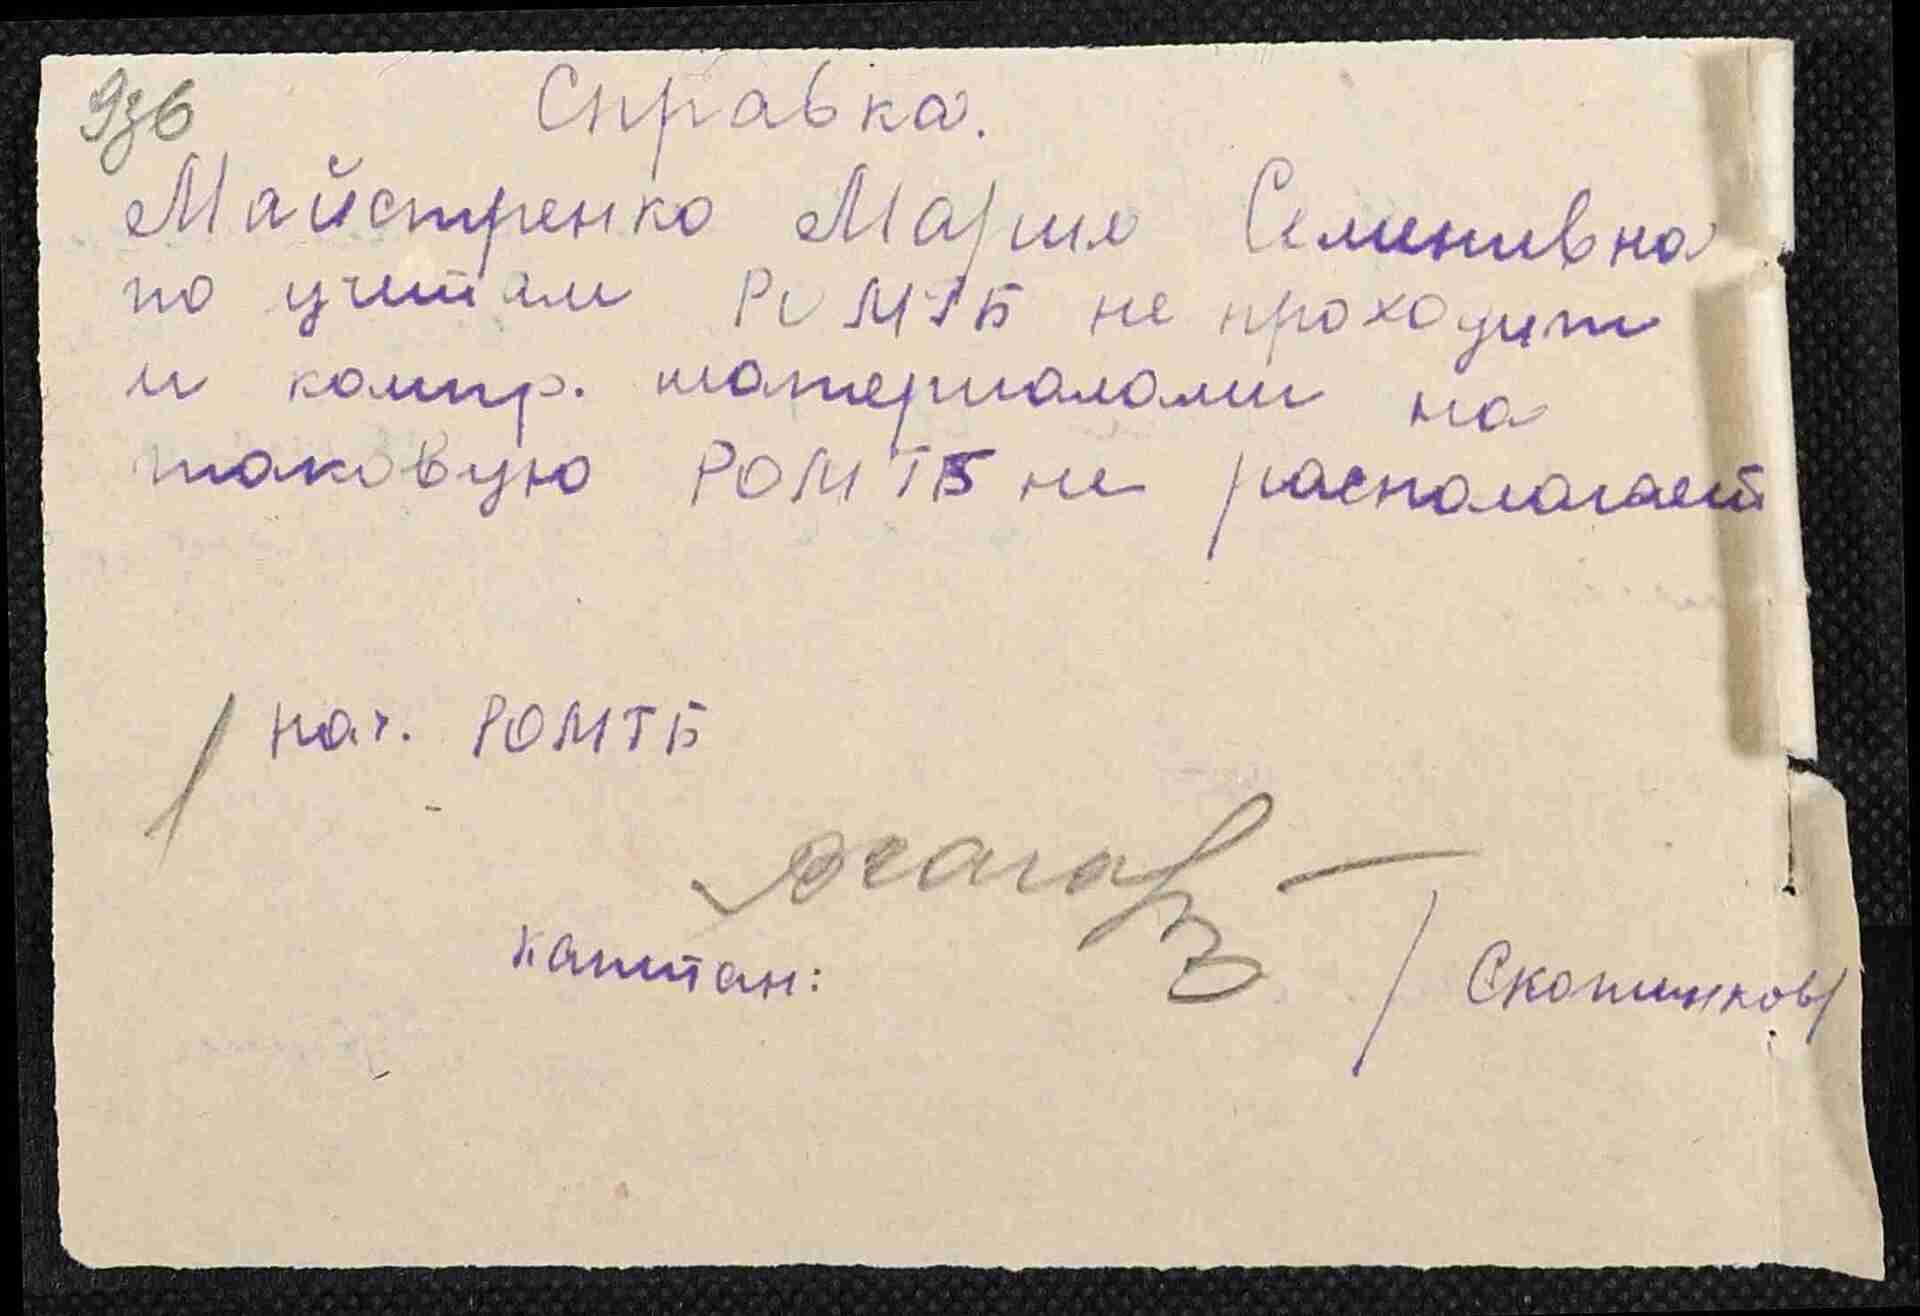 936
Справка.
Майстренко Мария Семенивна
по учетам РОМТБ не проходит
и компр. материалами на
таковую РОМТБ не располагает
нач. РОМТБ
капитан:
/Скотинков/